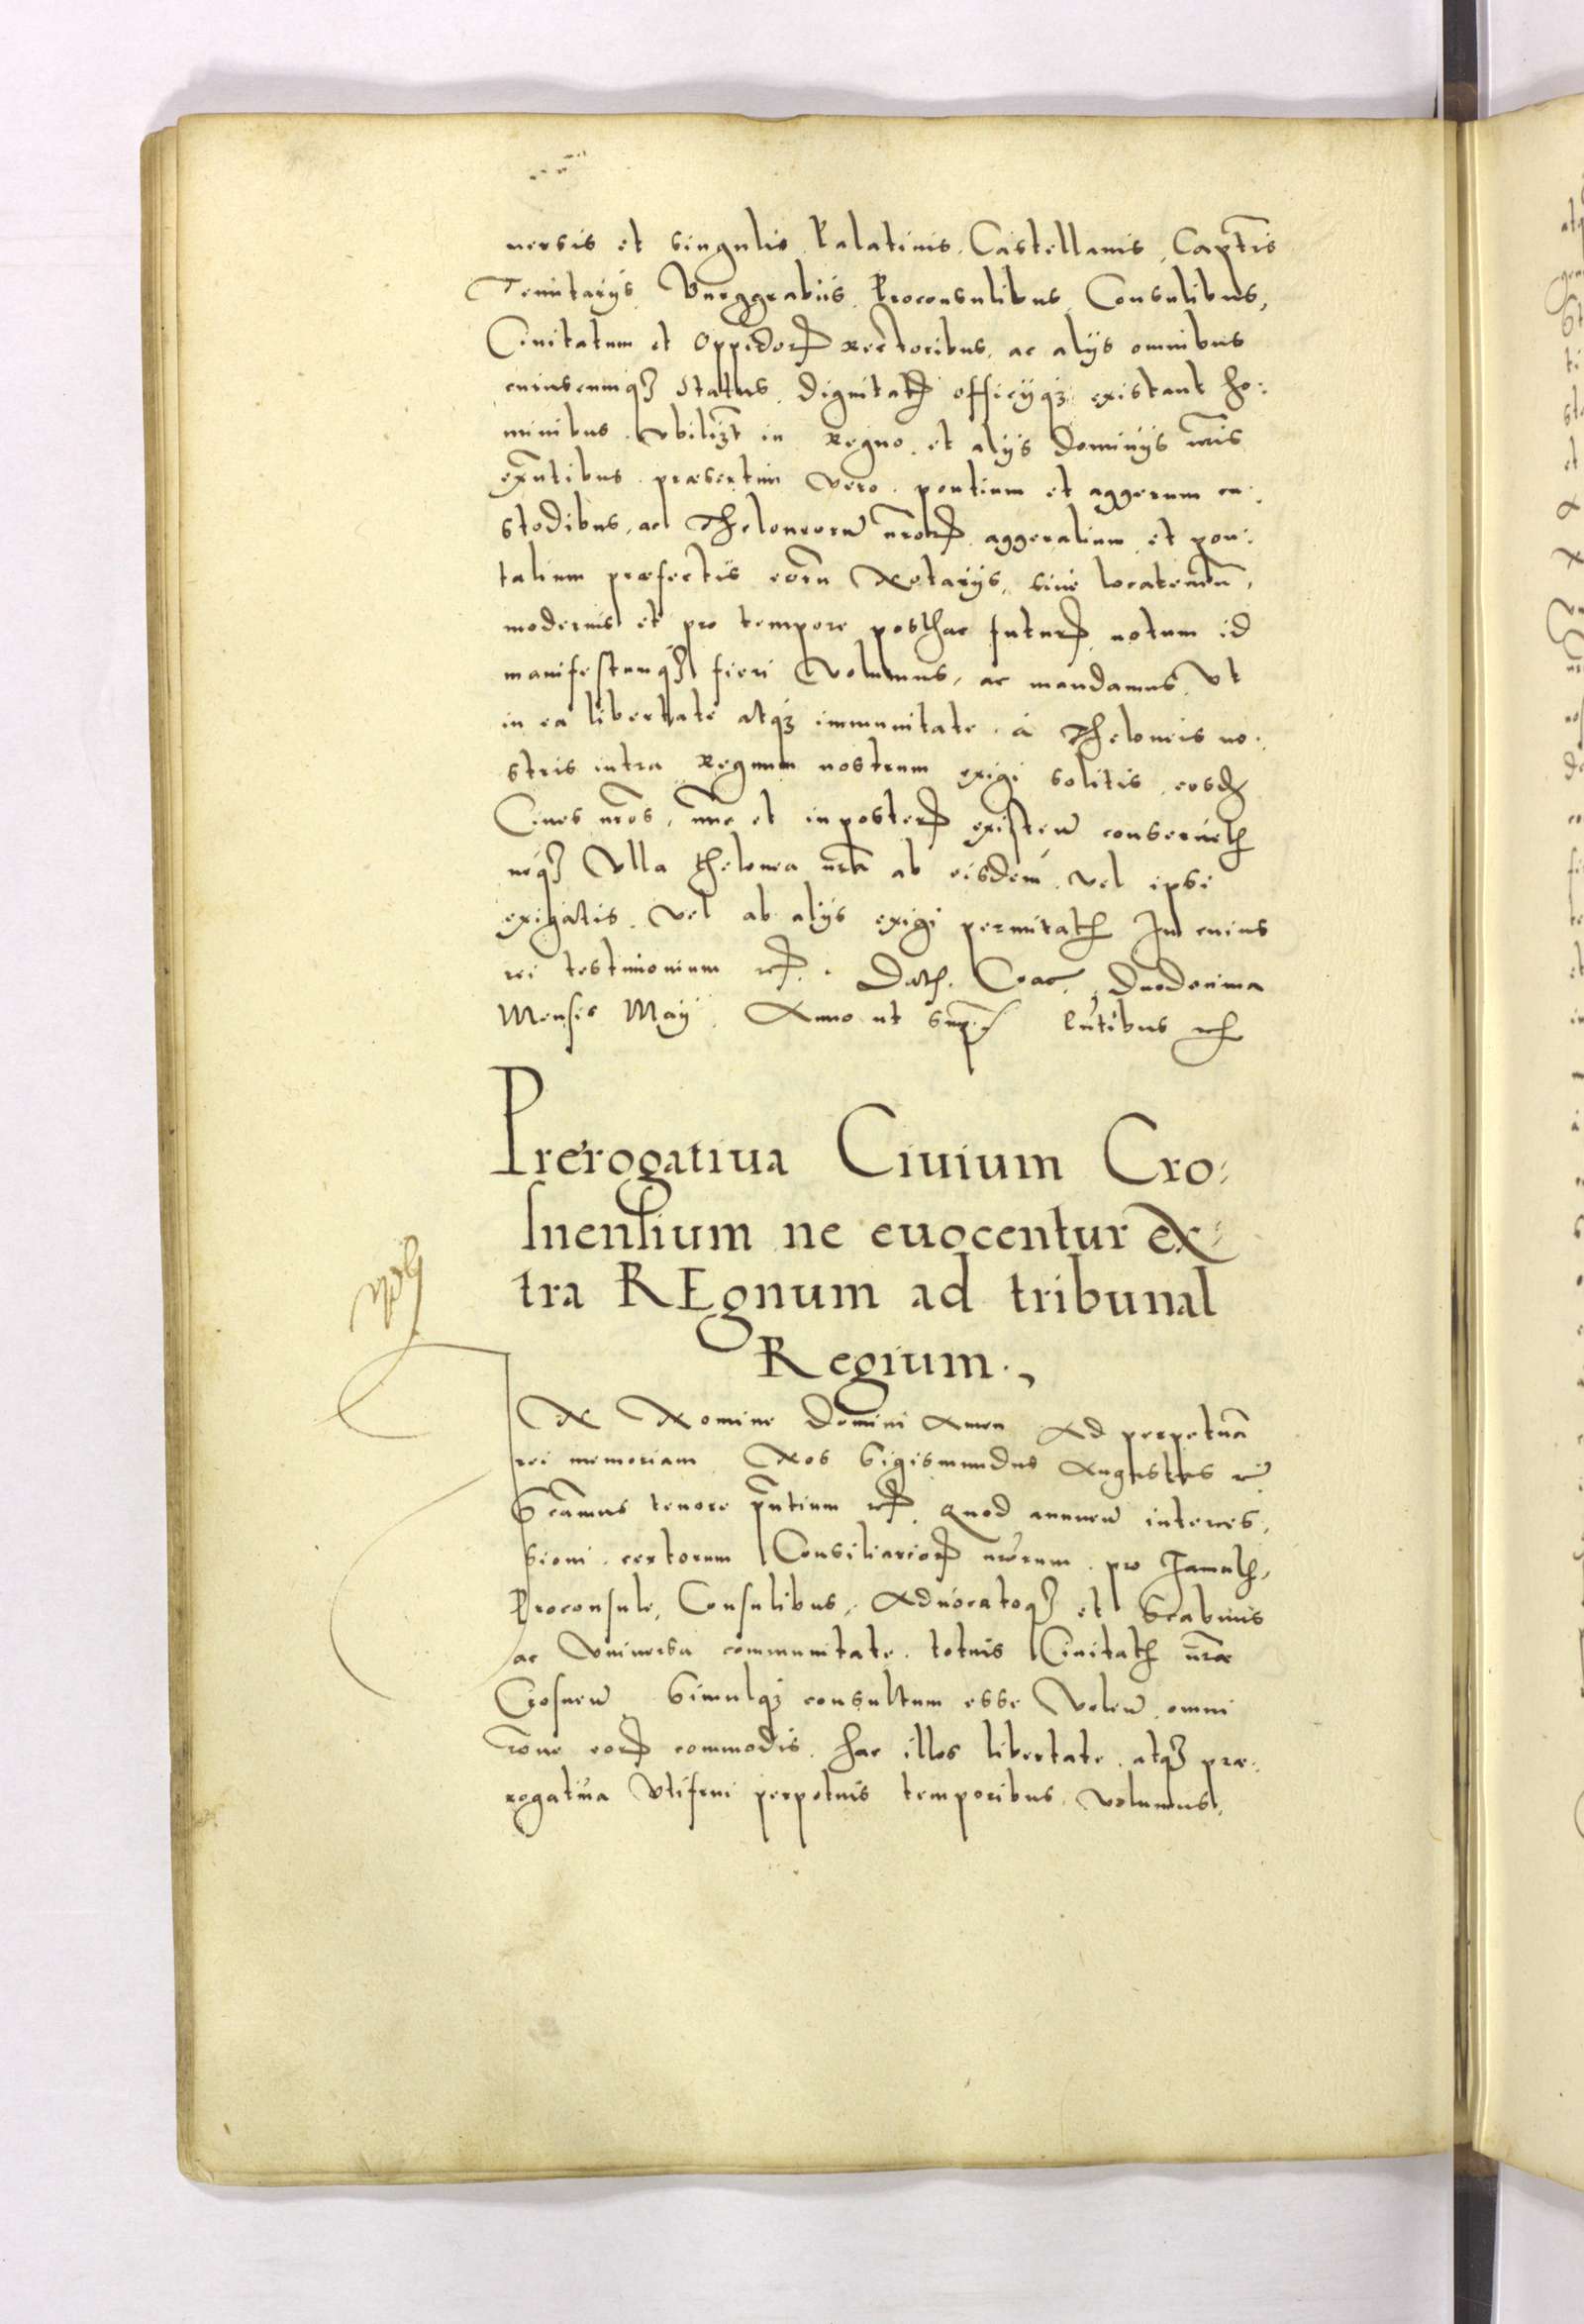 uersis et singulis Palatinis, Castellanis, Captis
Tenutarijs, Burggrabiis, Proconsulibus, Consulibus,
Ciuitatum et Oppidor Rectoribus, ac alijs omnibus
cuiuscunqȝ status, dignitat officijqȝ existant ho:
minibus, vbilizt in Regno, et alijs Dominijs nris
exntibus, præsertim vero, pontium et aggerum cu:
stodibus, ac Theloneoru nror aggeralium, et pon:
talium præfectis eoru Notarijs, siue locatenen,
modernis et pro tempore posthac futur, notum id
manifestunqȝ fieri volumus, ac mandamus, Vt
in ea libertate atqȝ immunitate, à Theloneis no:
stris intra Regnum nostrum exigi solitis, eosd
Ciues nros, nunc et in poster existen conseruet
neqȝ Vlla thelonea nra ab eisdem, vel ipsi
exigatis, vel ab alijs exigi permitat In cuius
rei testimonium etc. Dat. Crac. Duodecima
Mensis Maij. Anno ut supra pntibus etc
Prerogatiua Ciuium Cro:
snensium ne euocentur ex:
tra REgnum ad tribunal
Regium.,
IN Nomine Domini Amen Ad perpetua
rei memoriam Nos Sigismundus Augustus etc
Scamus tenore pntium etc. Quod annuen interces:
sioni, certorum Consiliarior nrorum, pro Famat,
Proconsule, Consulibus, Aduocatoqȝ et Scabinis
ac Vniuersa communitate, totius Ciuitat nræ
Crosnen, Simulqȝ consultum esse Volen, omni
rone eor commodis, hac illos libertate, atqȝ præ:
rogatiua Vtifrui perpetuis temporibus, volumus,